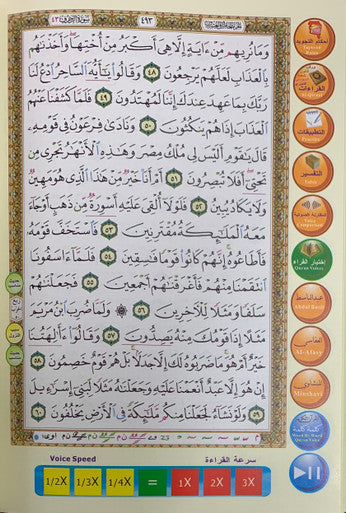 سورة الزخرف ٤٣
٤٩٣
وَمَا نُرِيهِم مِّنْ ءَايَةٍ إِلَّا هِىَ أَكْبَرُ مِنْ أُخْتِهَا وَأَخَذْنَٰهُم
بِٱلْعَذَابِ لَعَلَّهُمْ يَرْجِعُونَ ٤٨ وَقَالُوا۟ يَٰٓأَيُّهَ ٱلسَّاحِرُ ٱدْعُ لَنَا
رَبَّكَ بِمَا عَهِدَ عِندَكَ إِنَّنَا لَمُهْتَدُونَ ٤٩ فَلَمَّا كَشَفْنَا عَنْهُمُ
ٱلْعَذَابَ إِذَا هُمْ يَنكُثُونَ ٥٠ وَنَادَىٰ فِرْعَوْنُ فِى قَوْمِهِۦ
قَالَ يَٰقَوْمِ أَلَيْسَ لِى مُلْكُ مِصْرَ وَهَٰذِهِ ٱلْأَنْهَٰرُ تَجْرِى مِن
تَحْتِىٓ أَفَلَا تُبْصِرُونَ ٥١ أَمْ أَنَا۠ خَيْرٌ مِّنْ هَٰذَا ٱلَّذِى هُوَ مَهِينٌ
وَلَا يَكَادُ يُبِينُ ٥٢ فَلَوْلَآ أُلْقِىَ عَلَيْهِ أَسْوِرَةٌ مِّن ذَهَبٍ أَوْ جَآءَ
مَعَهُ ٱلْمَلَٰٓئِكَةُ مُقْتَرِنِينَ ٥٣ فَٱسْتَخَفَّ قَوْمَهُۥ
فَأَطَاعُوهُ إِنَّهُمْ كَانُوا۟ قَوْمًا فَٰسِقِينَ ٥٤ فَلَمَّآ ءَاسَفُونَا
ٱنتَقَمْنَا مِنْهُمْ فَأَغْرَقْنَٰهُمْ أَجْمَعِينَ ٥٥ فَجَعَلْنَٰهُمْ
سَلَفًا وَمَثَلًا لِّلْءَاخِرِينَ ٥٦ وَلَمَّا ضُرِبَ ٱبْنُ مَرْيَمَ
مَثَلًا إِذَا قَوْمُكَ مِنْهُ يَصِدُّونَ ٥٧ وَقَالُوٓا۟ ءَأَٰلِهَتُنَا
خَيْرٌ أَمْ هُوَ مَا ضَرَبُوهُ لَكَ إِلَّا جَدَلًۢا بَلْ هُمْ قَوْمٌ خَصِمُونَ ٥٨
إِنْ هُوَ إِلَّا عَبْدٌ أَنْعَمْنَا عَلَيْهِ وَجَعَلْنَٰهُ مَثَلًا لِّبَنِىٓ إِسْرَٰٓءِيلَ ٥٩
وَلَوْ نَشَآءُ لَجَعَلْنَا مِنكُم مَّلَٰٓئِكَةً فِى ٱلْأَرْضِ يَخْلُفُونَ ٦٠
أحكام التجويد
Tajweed
Rules
القراءات
التطبيقات
Practice
التفسير
المقارنة الصوتية
Voice
Comparison
إختيار القراء
Quran Voices
عبدالباسط
Abdul Basit
العفاسي
Al-Afasy
المنشاوي
Minshavi
كلمة كلمة
Word By Word
Voice Speed
سرعة القراءة
1/2X
1/3X
1/4X
=
1X
2X
3X